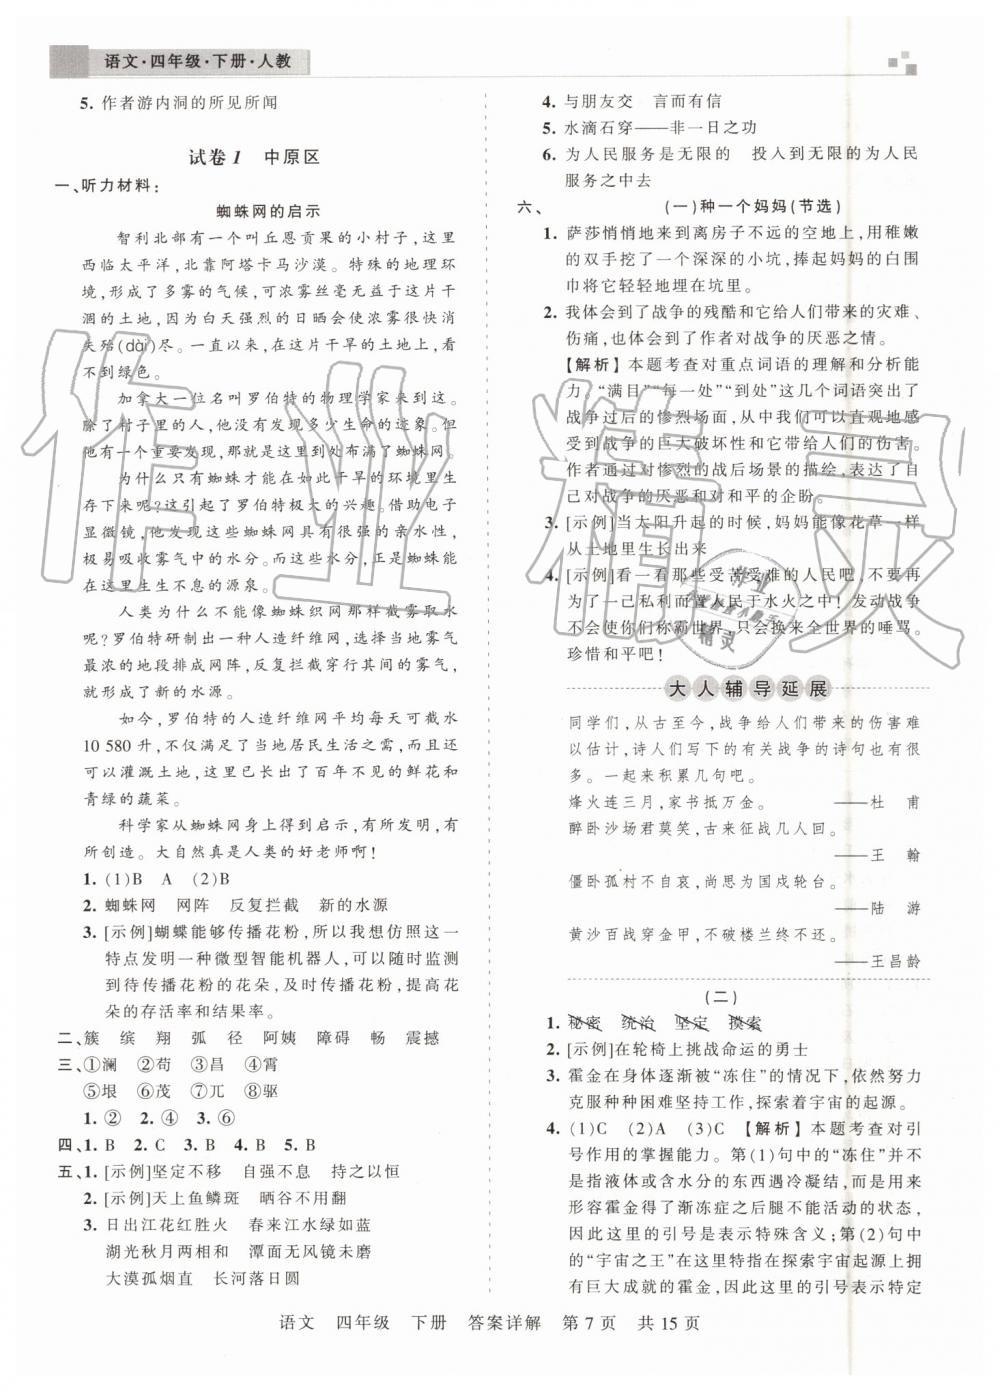 语文·四年级·下册·人教
5. 作者游内洞的所见所闻
试卷1 中原区
一、听力材料：
蜘蛛网的启示
智利北部有一个叫丘恩贡果的小村子，这里
西临太平洋，北靠阿塔卡马沙漠。特殊的地理环
境，形成了多雾的气候，可浓雾丝毫无益于这片干
涸的土地，因为白天强烈的日晒会使浓雾很快消
失殆(dài)尽。一直以来，在这片干旱的土地上，看
不到绿色。
加拿大一位名叫罗伯特的物理学家来到这。
除了村子里的人，他没有发现多少生命的迹象。但
他有一个重要发现，那就是这里处处布满了蜘蛛网。
为什么只有蜘蛛才能在如此干旱的环境里生
存下来呢？这引起了罗伯特极大的兴趣。借助电子
显微镜，他发现这些蜘蛛网具有很强的亲水性，
极易吸收雾气中的水分。而这些水分，正是蜘蛛能
在这里生生不息的源泉。
人类为什么不能像蜘蛛织网那样截雾取水
呢？罗伯特研制出一种人造纤维网，选择当地雾气
最浓的地段排成网阵，反复拦截穿行其间的雾气，
就形成了新的水源。
如今，罗伯特的人造纤维网平均每天可截水
10 580 升，不仅满足了当地居民生活之需，而且还
可以灌溉土地，这里已长出了百年不见的鲜花和
青绿的蔬菜。
科学家从蜘蛛网身上得到启示，有所发明，有
所创造。大自然真是人类的好老师啊！
1. (1)B A (2)B
2. 蜘蛛网 网阵 反复拦截 新的水源
3. [示例]蝴蝶能够传播花粉，所以我想仿照这一
特点发明一种微型智能机器人，它可以随时监测
到待传播花粉的花朵，及时传播花粉，提高花
朵的存活率和结果率。
二、簇 缤 翔 弧 径 阿姨 障碍 畅 震撼
三、①澜 ②苟 ③昌 ④霄
⑤垠 ⑥茂 ⑦兀 ⑧驱
1. ② 2. ④ 3. ⑥
四、1. B 2. C 3. B 4. B 5. B
五、1. [示例]坚定不移 自强不息 持之以恒
2. [示例]天上鱼鳞斑 晒谷不用翻
3. 日出江花红胜火 春来江水绿如蓝
湖光秋月两相和 潭面无风镜未磨
大漠孤烟直 长河落日圆
4. 与朋友交 言而有信
5. 水滴石穿——非一日之功
6. 为人民服务是无限的 投入到无限的为人民
服务之中去
六、 (一)种一个妈妈(节选)
1. 萨莎悄悄地来到离房子不远的空地上，用稚嫩
的双手挖了一个深深的小坑，捧起妈妈的白围
巾将它轻轻地埋在坑里。
2. 我体会到了战争的残酷和它给人们带来的灾难、
伤痛，也体会到了作者对战争的厌恶之情。
【解析】本题考查对重点词语的理解和分析能
力。“满目”“每一处”“到处”这几个词语突出了
战争过后的惨烈场面，从中我们可以直观地感
受到战争的巨大破坏性和它带给人们的伤害。
作者通过对惨烈的战后场景的描绘，表达了自
己对战争的厌恶和对和平的企盼。
3. [示例]当太阳升起的时候，妈妈能像花草一样
从土地里生长出来
4. [示例]看一看那些受苦受难的人民吧，不要再
为了一己私利而置人民于水火之中！发动战争
不会使你们称霸世界，只会换来全世界的唾骂。
珍惜和平吧！
大人辅导延展
同学们，从古至今，战争给人们带来的伤害难
以估计，诗人们写下的有关战争的诗句也有很
多。一起来积累几句吧。
烽火连三月，家书抵万金。 ——杜 甫
醉卧沙场君莫笑，古来征战几人回。
——王 翰
僵卧孤村不自哀，尚思为国戍轮台。
——陆 游
黄沙百战穿金甲，不破楼兰终不还。
——王昌龄
(二)
1. 秘密 统治 坚定 摸索
2. [示例]在轮椅上挑战命运的勇士
3. 霍金在身体逐渐被“冻住”的情况下，依然努力
克服种种困难坚持工作，探索着宇宙的起源。
4. (1)C (2)A (3)C 【解析】本题考查对引
号作用的掌握能力。第(1)句中的“冻住”并不是
液体或含水分的东西遇冷凝结，而是用来
形容霍金得了渐冻症之后不能活动的状态，
因此这里的引号表示特殊含义；第(2)句中
的“宇宙之王”在这里特指在探索宇宙起源上拥
有巨大成就的霍金，因此这里的引号表示特定
语文 四年级 下册 答案详解 第7页 共15页
作业精灵